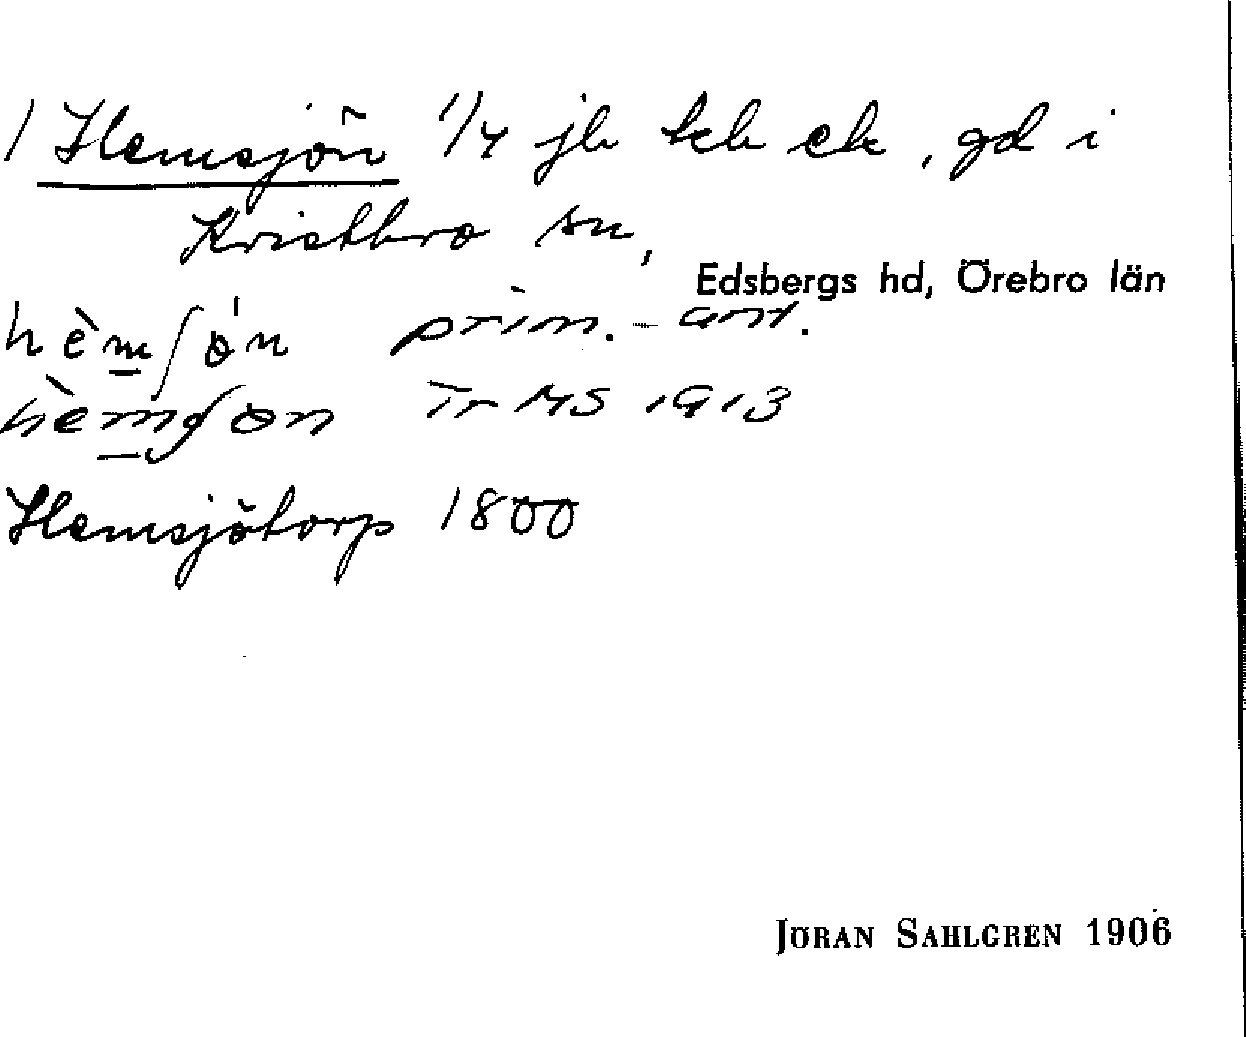 1 Hemsjön 1/4 jb tcb ek, gd i
Kvistbro sn,
Edsbergs hd, Örebro län
hèm∫ǿn prim.-ant.
hèm∫øn Tr MS 1913
Hemsjötorp 1800
JÖRAN SAHLGREN 1906